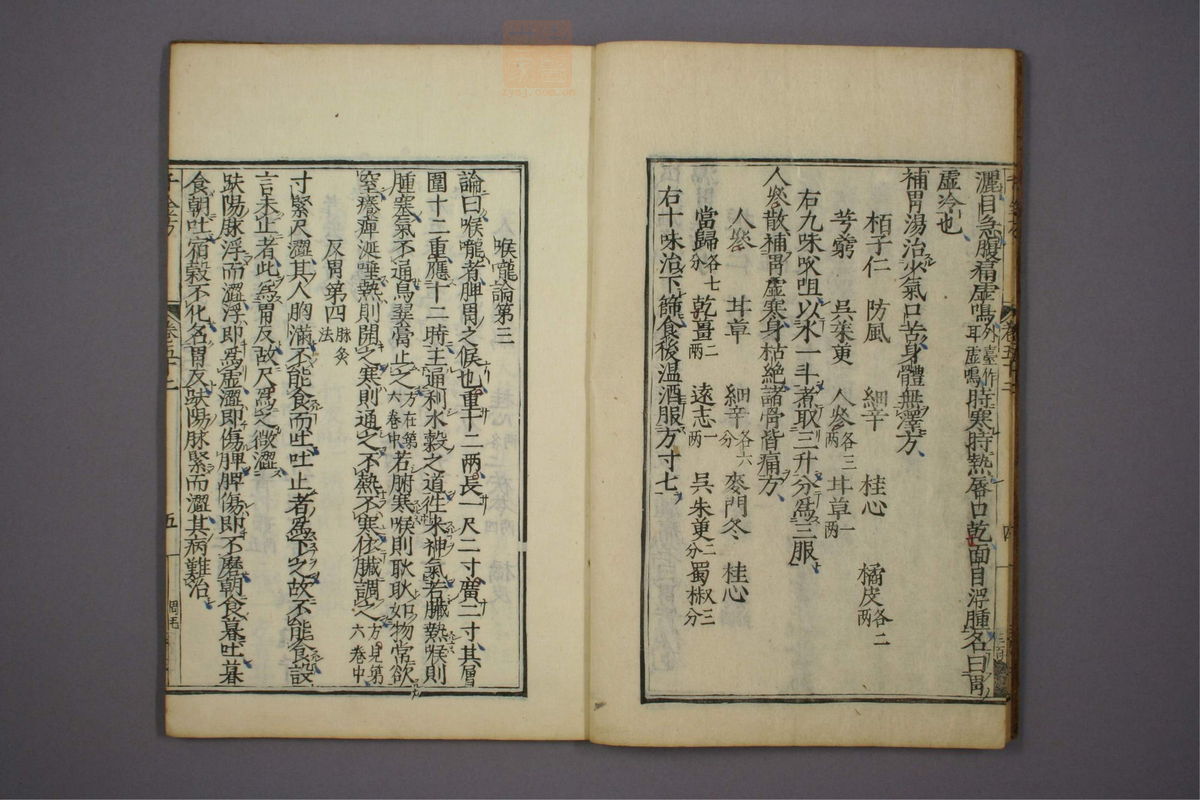 灑目急腹痛虛鳴外臺作耳虛鳴時寒時熱唇口乾面目浮腫名曰胃
虛冷也
補胃湯治少氣口苦身體無澤方
栢子仁 防風 細辛 桂心 橘皮各二兩
芎藭 吳茱萸 人參各三兩 甘草一兩
右九味㕮咀以水一斗煮取三升分爲三服
人參散補胃虛寒身枯絶諸骨皆痛方
人參 甘草 細辛各六分 麥門冬 桂心
當歸各七分 乾薑二兩 遠志一兩 吳朱萸二分 蜀椒三分
右十味治下篩食後温酒服方寸匕
喉嚨論第三
論曰喉嚨者脾胃之候也重十二兩長一尺二寸廣二寸其層
圍十二重應十二時主通利水穀之道徃來神氣若臓熱喉則
腫塞氣不通烏翣膏止之方在第六卷中若腑寒喉則耿耿如物常欲
窒癢痺涎唾熱則開之寒則通之不熱不寒依臓調之方見第六卷中
反胃第四脉灸法
寸緊尺澀其人胸滿不能食而吐吐止者爲下之故不能食設
言未止者此爲胃反故尺爲之微澀
趺陽脉浮而澀浮即爲虛澀即傷脾脾傷即不磨朝食暮吐暮
食朝吐宿穀不化名胃反趺陽脉緊而澀其病難治
五